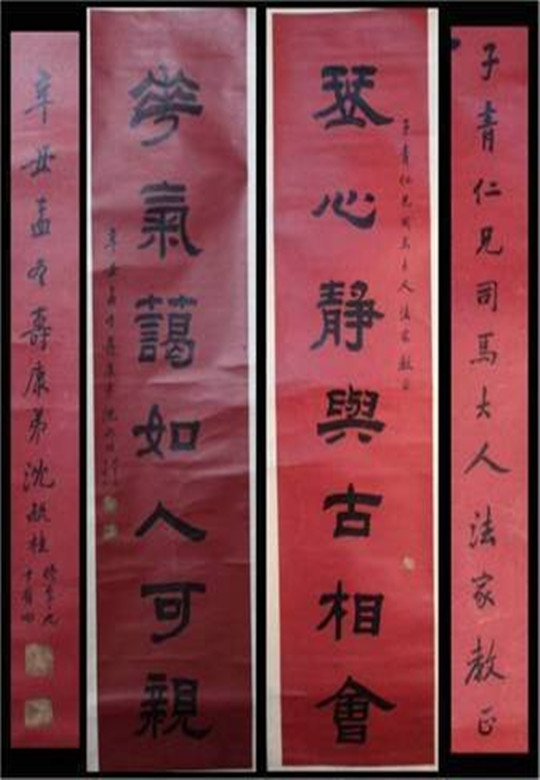 子青仁兄司馬大人法家教正
子青仁兄司馬大人 法家教正
琹心靜與古相會
華氣藹如人可親
辛丑孟冬壽康弟沈毓桂
辛丑孟冬壽康弟沈毓桂
時年九
十有